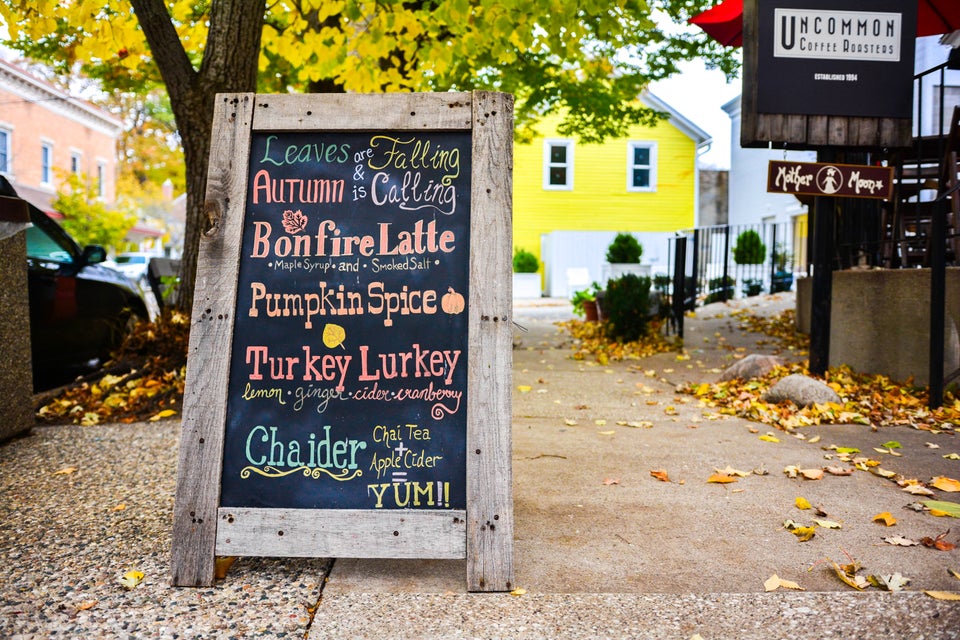 Leaves are Falling
&
Autumn is Calling
Bonfire Latte
• Maple Syrup • and • Smoked Salt •
Pumpkin Spice
Turkey Lurkey
lemon • ginger • cider • cranberry
Chaider
Chai Tea
+
Apple Cider
=
YUM!!
Uncommon
Coffee Roasters
ESTABLISHED 1994
Mother Moon